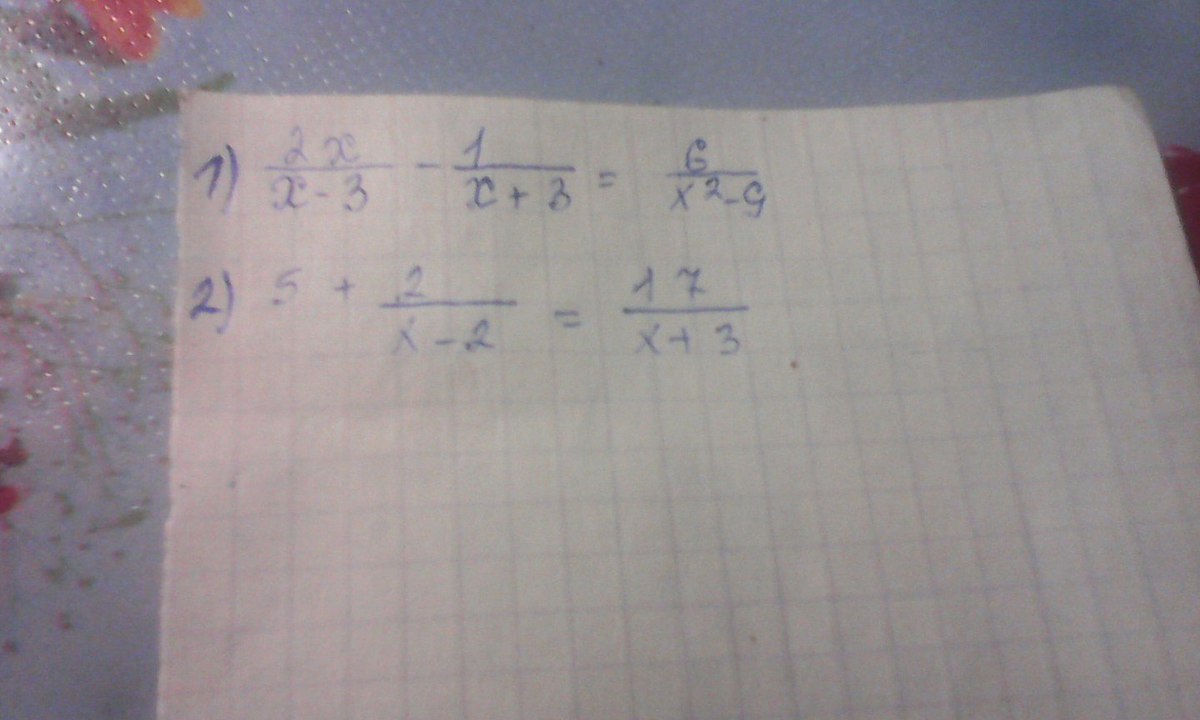 1) 2x/(x-3) - 1/(x+3) = 6/(x²-9)
2) 5 + 2/(x-2) = 17/(x+3)